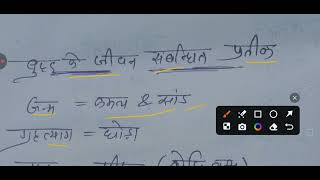 बुद्ध के जीवन संबन्धित प्रतीक
जन्म = कमल & सांड
गृहत्याग = घोड़ा